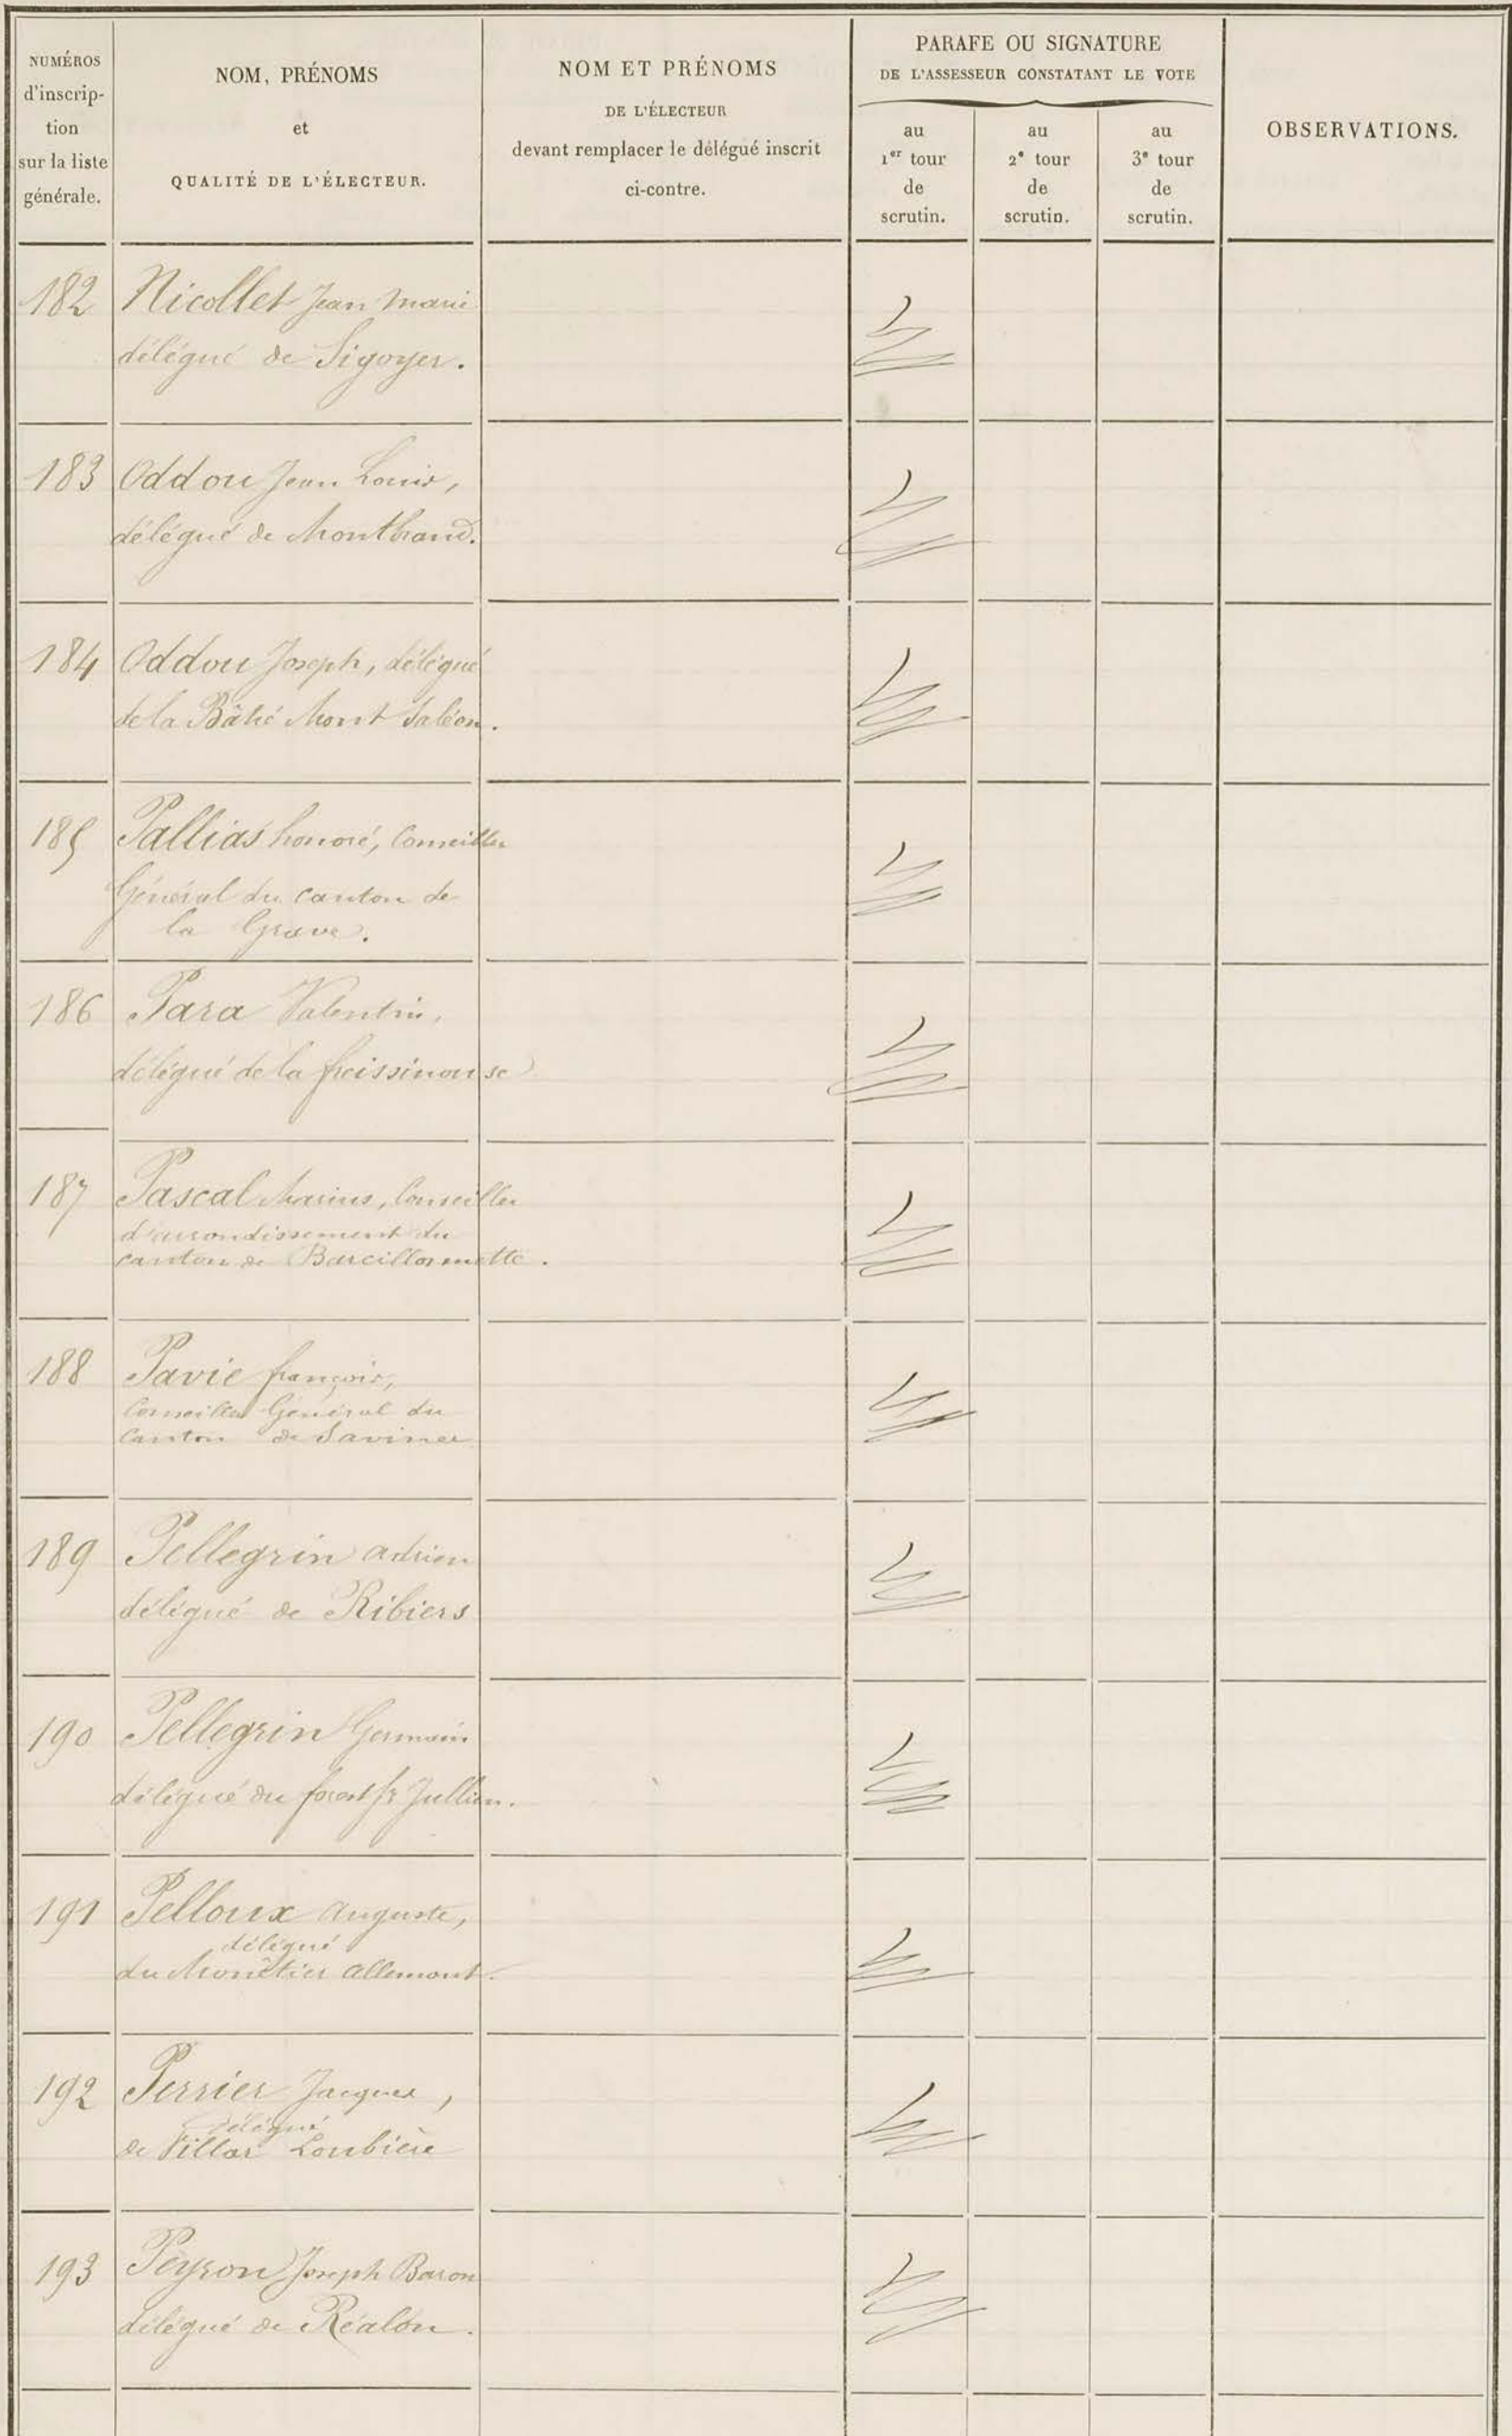 NUMÉROS
d'inscrip-
tion
sur la liste
générale.
NOM, PRÉNOMS
et
QUALITÉ DE L'ÉLECTEUR.
NOM ET PRÉNOMS
DE L'ÉLECTEUR
devant remplacer le délégué inscrit
ci-contre.
PARAFE OU SIGNATURE
DE L'ASSESSEUR CONSTATANT LE VOTE
au
1er tour
de
scrutin.
au
2e tour
de
scrutin.
au
3e tour
de
scrutin.
OBSERVATIONS.
182 Nicollet Jean Marie
délégué de Sigoyer.
183 Oddou Jean Louis,
délégué de Montbrand.
184 Oddou Joseph, délégué
de la Bâtié Mont Saléon.
185 Pallias honoré, Conseiller
Général du canton de
la Grave.
186 Para Valentin,
délégué de la freissinouse
187 Pascal Marius, Conseiller
d'arrondissement du
canton de Barcillonnette.
188 Pavie françois,
Conseiller Général du
Canton de Savines
189 Pellegrin adrien
délégué de Ribiers
190 Pellegrin Germain
délégué du forest St Jullien.
191 Pelloux auguste,
délégué
du Monêtier allemont.
192 Perrier Jacques,
délégué
de Villar Loubière
193 Peyron Joseph Baron
délégué de Réalon.